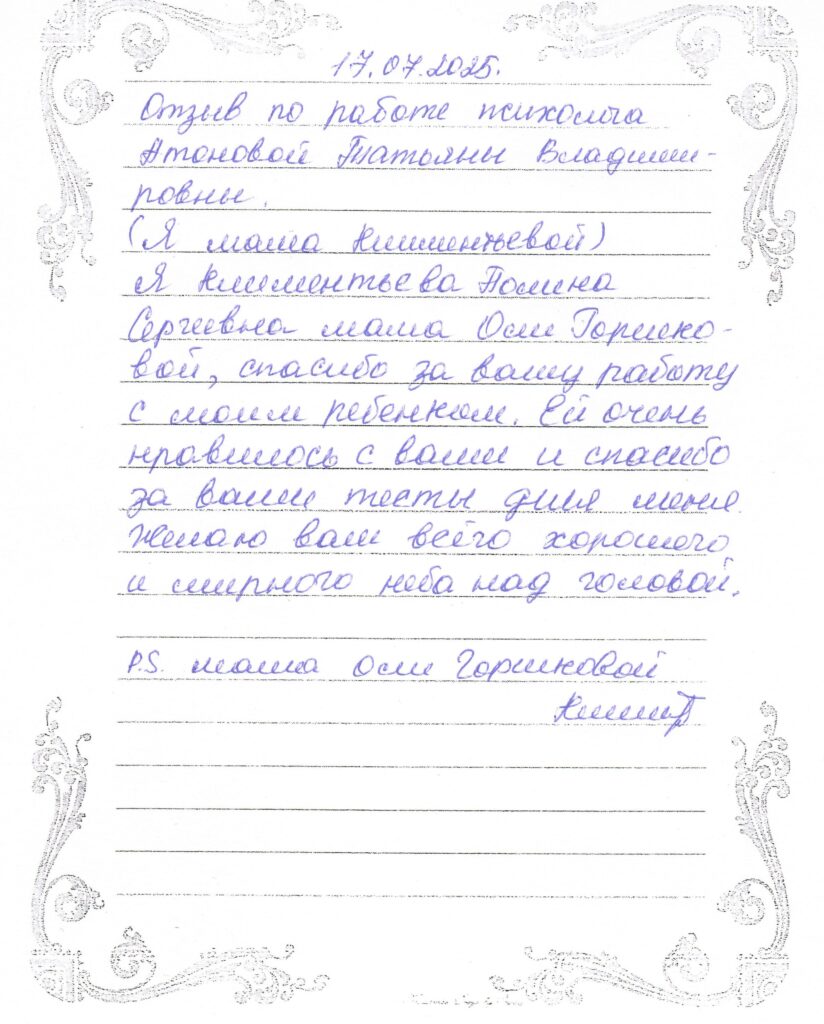 17.07.2025.
Отзыв по работе психолога
Атоновой Татьяны Владими-
ровны.
(Я мама Климентьевой)
Я Климентьева Полина
Сергеевна мама Оли Горшко-
вой, спасибо за вашу работу
с моим ребенком. Ей очень
нравилось с вами и спасибо
за ваши тесты для меня.
Желаю вам всего хорошего
и мирного неба над головой.
P.S. мама Оли Горшковой